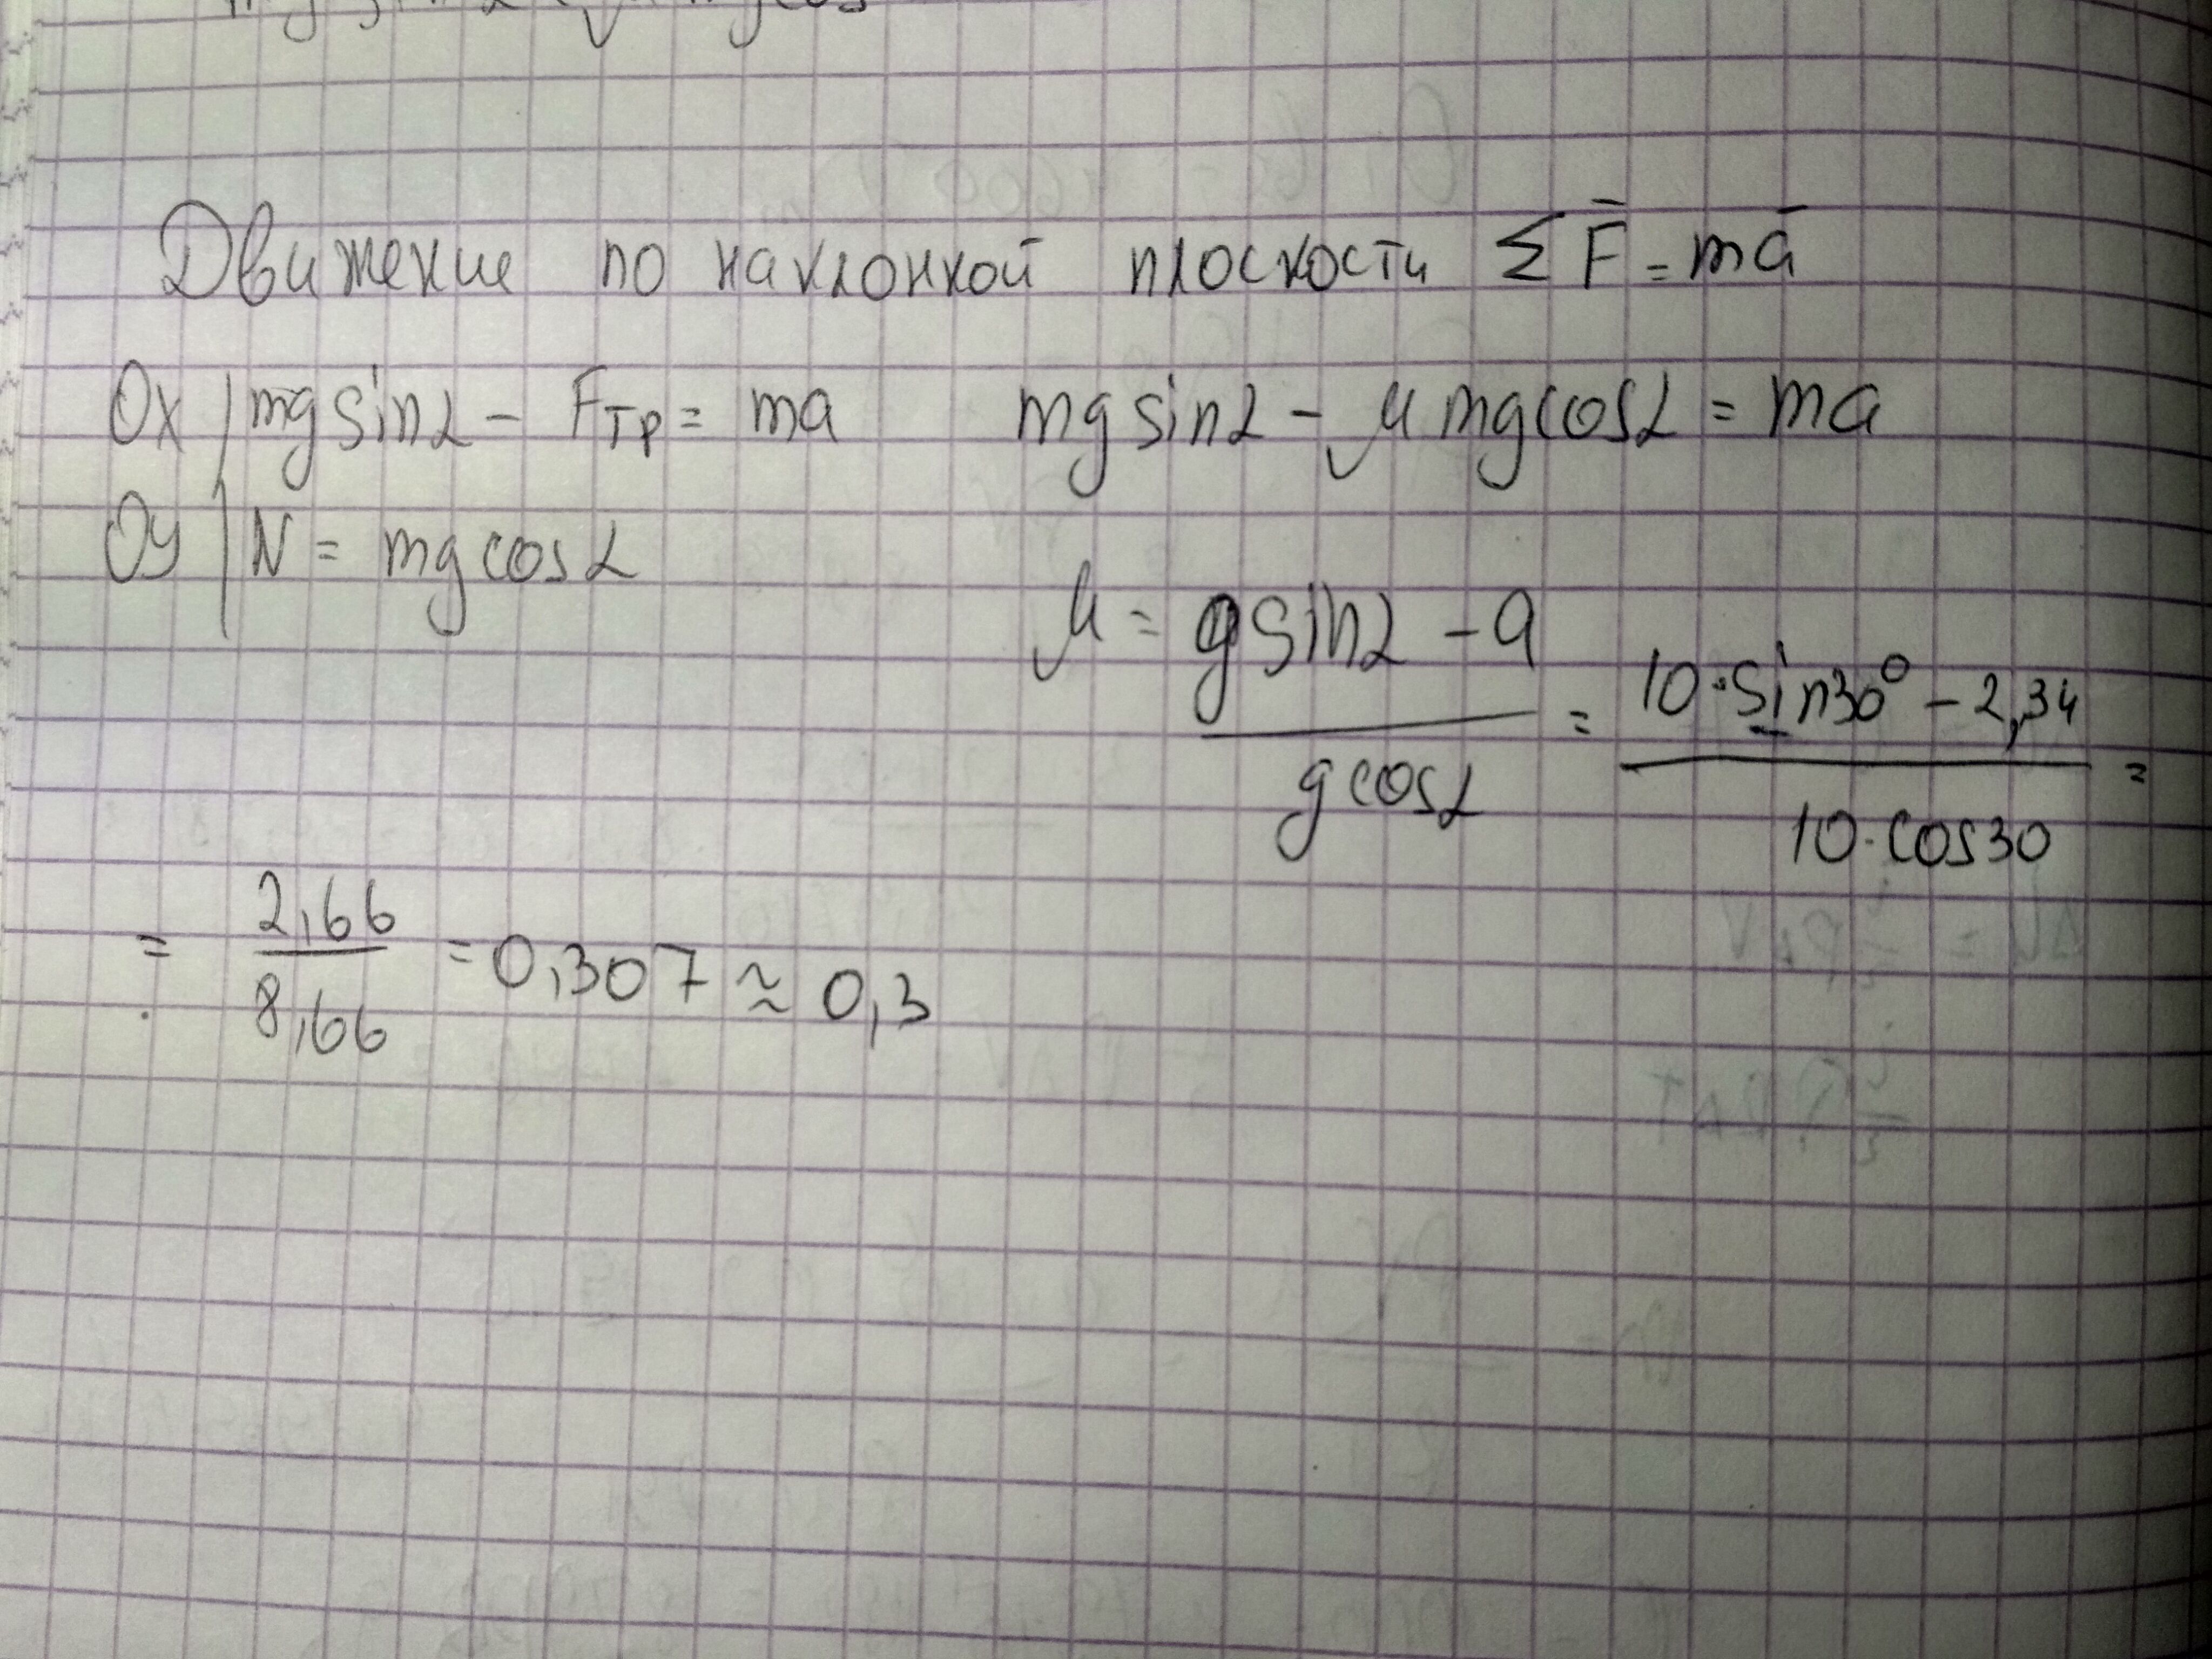 Движение по наклонной плоскости Σ F̄ = mā
Ox | mg sinα - Fтр = ma mg sinα - μ mg cosα = ma
Oy | N = mg cosα
μ = (g sinα - a) / (g cosα) = (10·sin30° - 2,34) / (10·cos30) =
= 2,66 / 8,66 = 0,307 ≈ 0,3